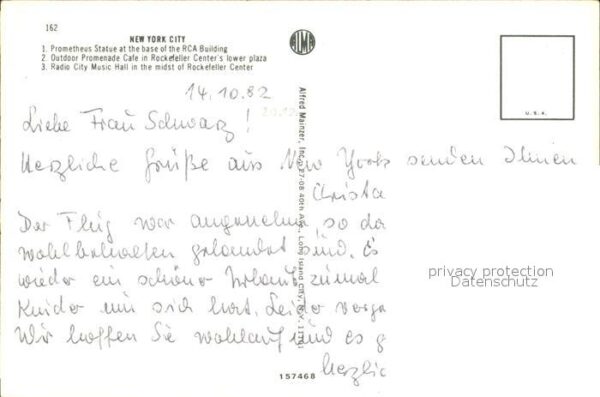 162
NEW YORK CITY
1. Prometheus Statue at the base of the RCA Building
2. Outdoor Promenade Cafe in Rockefeller Center's lower plaza
3. Radio City Music Hall in the midst of Rockefeller Center
U.S.A.
14.10.82
Liebe Frau Schwarz!
Herzliche Grüße aus New York senden Ihnen
Christa
Der Flug war angenehm, so da
wohlbehalten gelandet sind. Es
wieder ein schöner Urlaub zumal
Kinder mit sich hat. Leider verga
Wir hoffen Sie wohlauf und es g
Herzlic
Alfred Mainzer, Inc., 27-08 40th Ave., Long Island City, N.Y. 11101
privacy protection
Datenschutz
157468